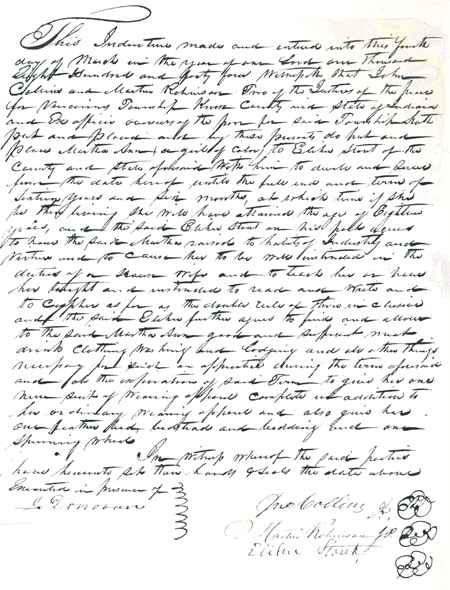 This Indenture made and entered into this fourth
day of March in the year of our Lord one thousand
Eight Hundred and forty four Witnesseth that John
Collins and Martin Robinson Two of the Justices of the peace
for Vincennes Township Knox County and State of Indiana
and Ex officio overseers of the poor for said Township hath
put and placed and by these presents do put and
place Martha Ann (a girl of Color) to Elihu Stout of the
County and State aforesaid With him to dwell and Serve
from the date hereof until the full end and term of
Sixteen Years and Six months, at which time if she
be then living she will have attained the age of Eighteen
years, and the said Elihu Stout on his part agrees
to have the said Martha raised to habits of Industry and
Virtue and to Cause her to be well instructed in the
duties of a House Wife and to teach her or have
her taught and instructed to read and Write and
to Cypher as far as the double rule of three inclusive
and the said Elihu further agrees to find and allow
to the said Martha Ann good and sufficient meat
drink Clothing Washing and Lodging and all other things
necessary for said an apprentice during the term aforesaid
and at the expiration of said Term to give her one
new Suit of Wearing apparel Complete in addition to
her ordinary Wearing apparel and also give her
one feather bed, bedstead and bedding and one
spinning wheel
In witness whereof the said parties
have hereunto set their hands & seals the date above
Executed in presence of
Donovan
Jno Collins
Martin Robinson
Elihu Stout